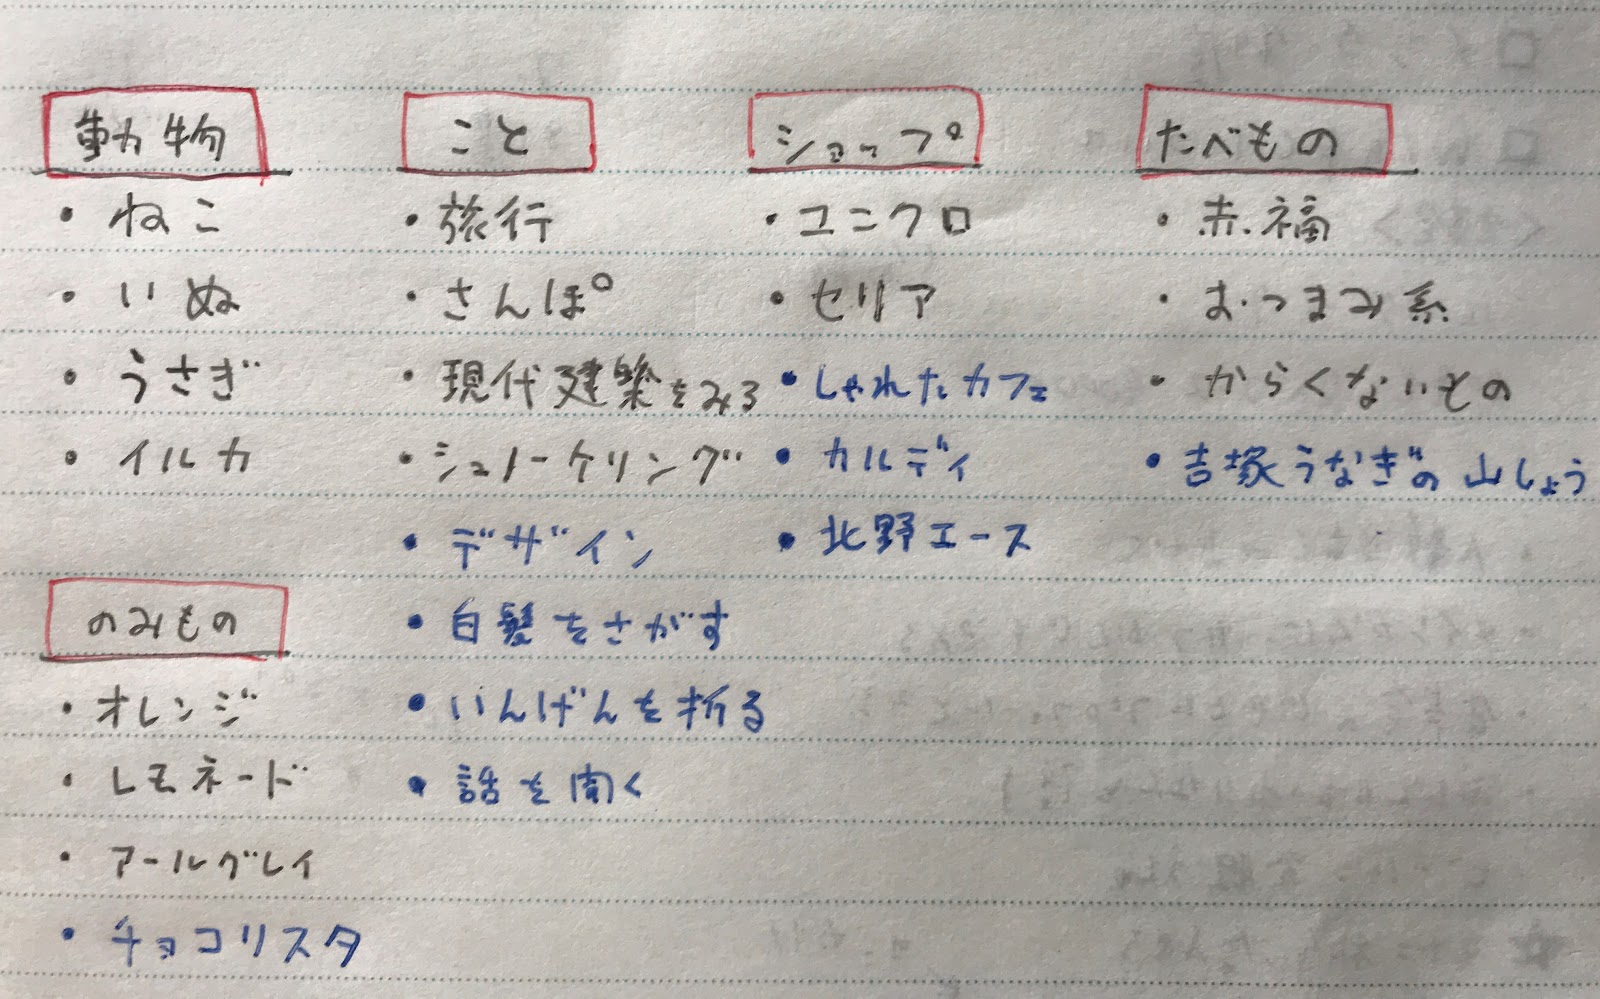 動物
・ねこ
・いぬ
・うさぎ
・イルカ
のみもの
・オレンジ
・レモネード
・アールグレイ
・チョコリスタ
こと
・旅行
・さんぽ
・現代建築をみる
・シュノーケリング
・デザイン
・白髪をさがす
・いんげんを折る
・話を聞く
ショップ
・ユニクロ
・セリア
・しゃれたカフェ
・カルディ
・北野エース
たべもの
・赤福
・おつまみ系
・からくないもの
・吉塚うなぎの山しょう